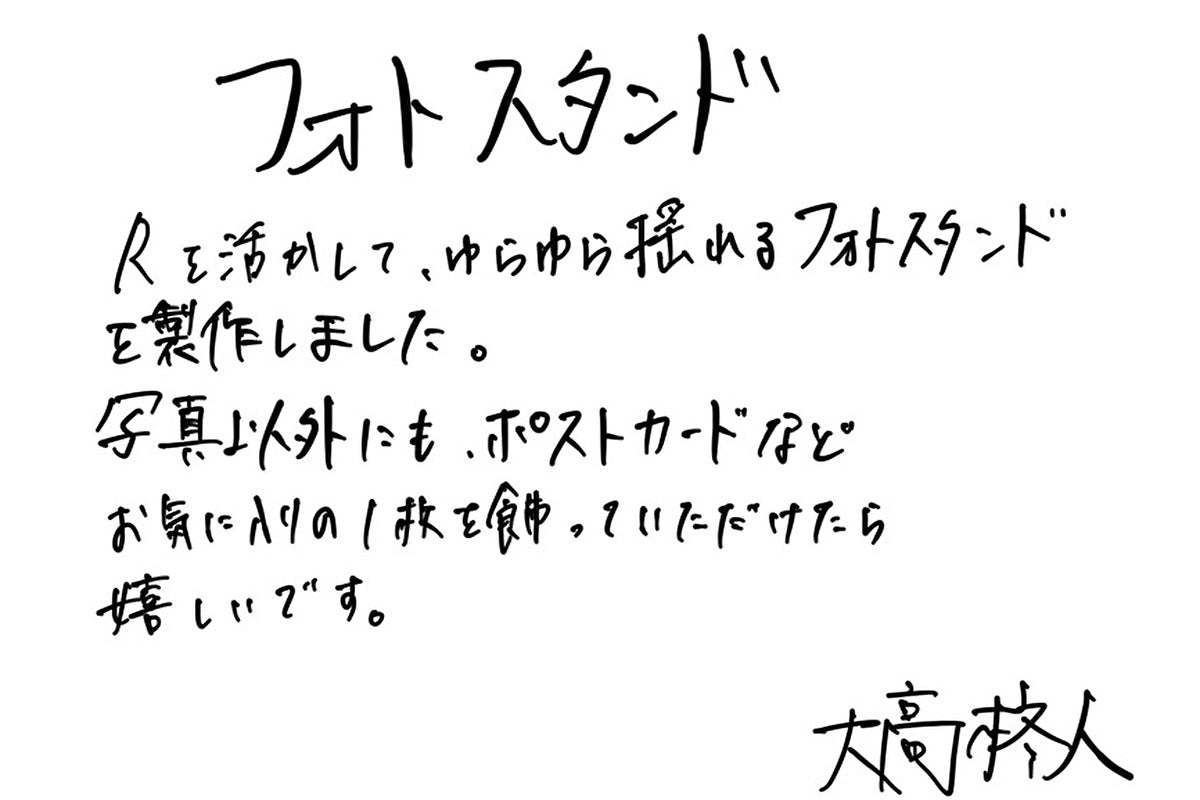 フォトスタンド
Rを活かして、ゆらゆら揺れるフォトスタンド
を製作しました。
写真以外にも、ポストカードなど
お気に入りの1枚を飾っていただけたら
嬉しいです。
大高柊人